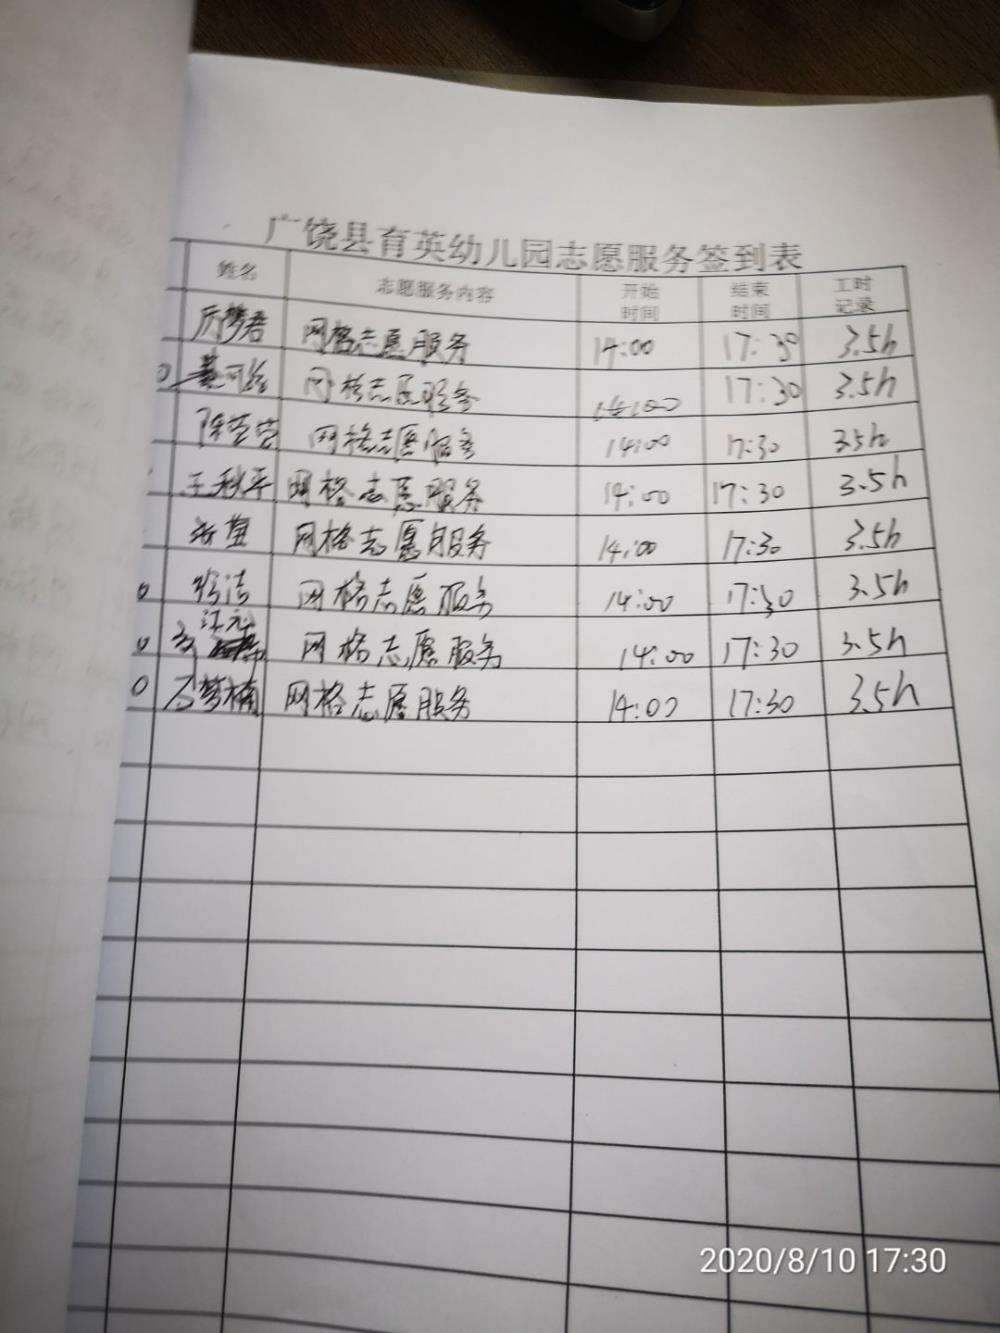 广饶县育英幼儿园志愿服务签到表
姓名 志愿服务内容 开始时间 结束时间 工时记录
厉梦君 网格志愿服务 14:00 17:30 3.5h
0 网格志愿服务 14:00 17:30 3.5h
陈莹莹 网格志愿服务 14:00 17:30 3.5h
王秋平 网格志愿服务 14:00 17:30 3.5h
网格志愿服务 14:00 17:30 3.5h
0 徐洁 网格志愿服务 14:00 17:30 3.5h
0 网格志愿服务 14:00 17:30 3.5h
0 石梦楠 网格志愿服务 14:00 17:30 3.5h
2020/8/10 17:30